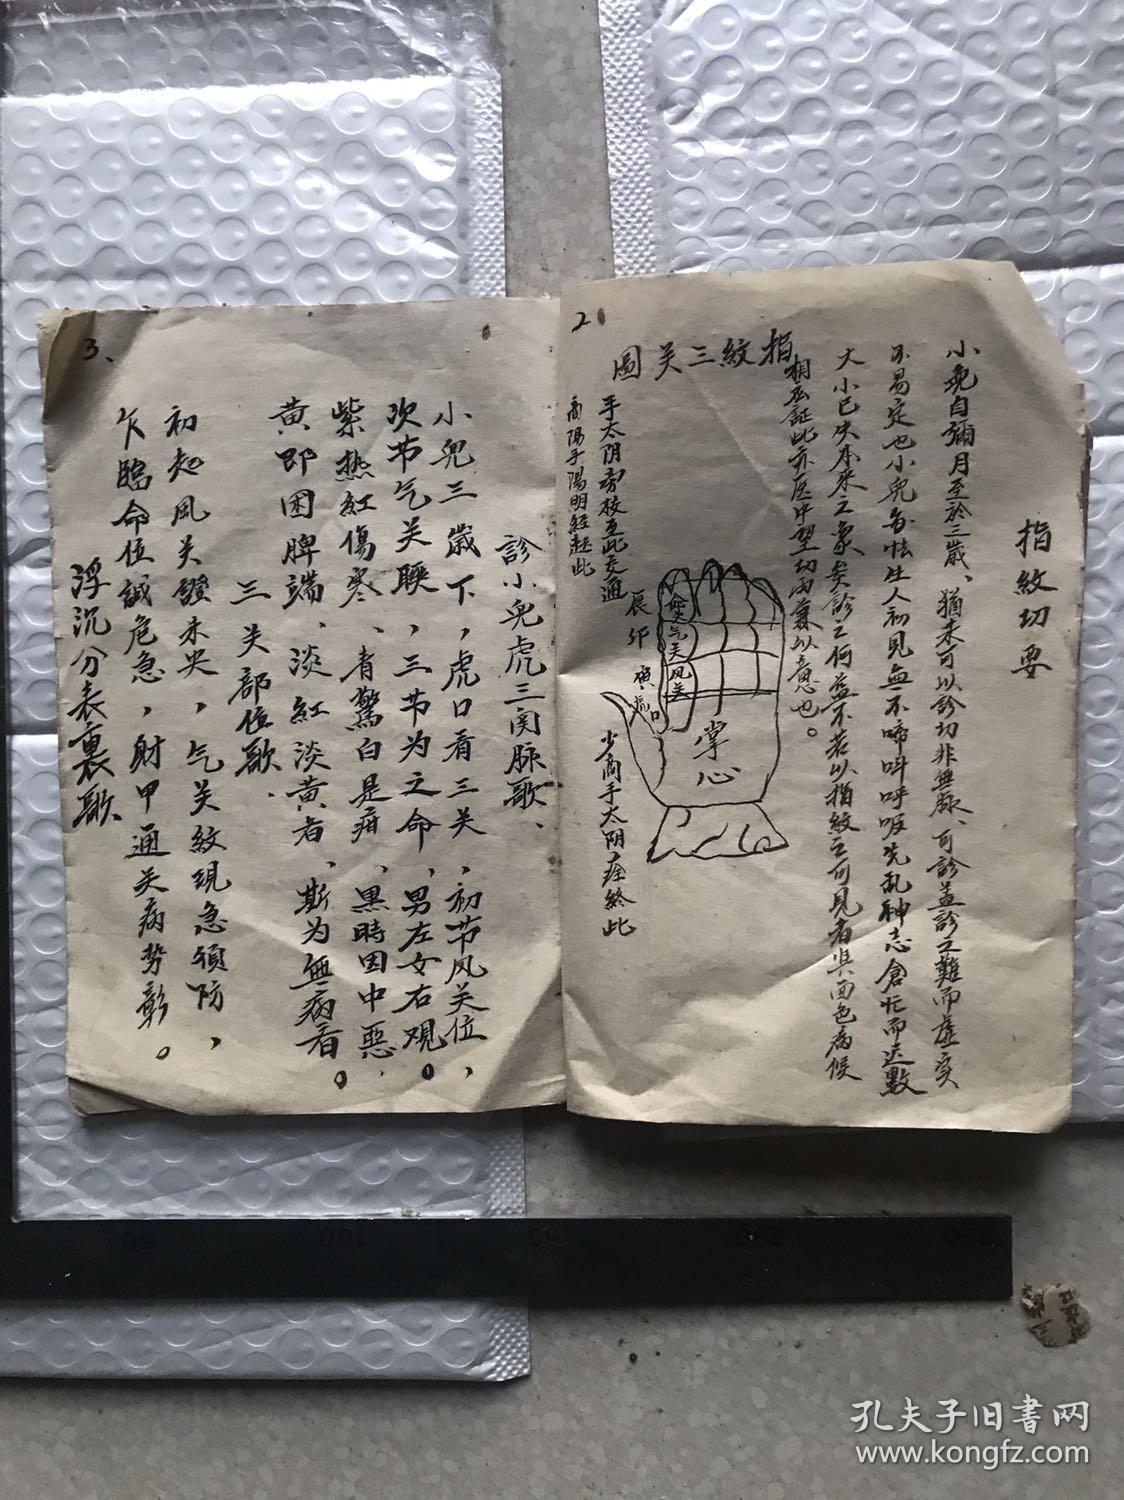 2
指紋切要
小兒自彌月至於三歲、猶未可以診切非無脉、可診盖診之難而虛实
不易定也小兒每怯生人初見無不啼叫呼吸先乱神志倉忙而迟數
大小已失本来之象矣診之何益不若以指紋之可見者與面色病候
相互証此亦医中望切兩兼以意也。
指紋三关圖
手太阴旁枝至此交通
商陽手陽明経起此
辰 卯 寅 虎口
命关 气关 风关
掌心
少商手太阴経終此
3、
診小兒虎三関脉歌、
小兒三歲下，虎口看三关，初节风关位，
次节气关聫，三节为之命，男左女右观。
紫热紅傷寒、青驚白是疳、黑時因中惡、
黄即困脾端、淡紅淡黄者、斯为無病看。
三关部位歌、
初起风关證未央，气关紋現急須防，
乍臨命位誠危急，射甲通关病势彰。
浮沉分表裏歌、
孔夫子旧書网
www.kongfz.com
50 100 150 200 250